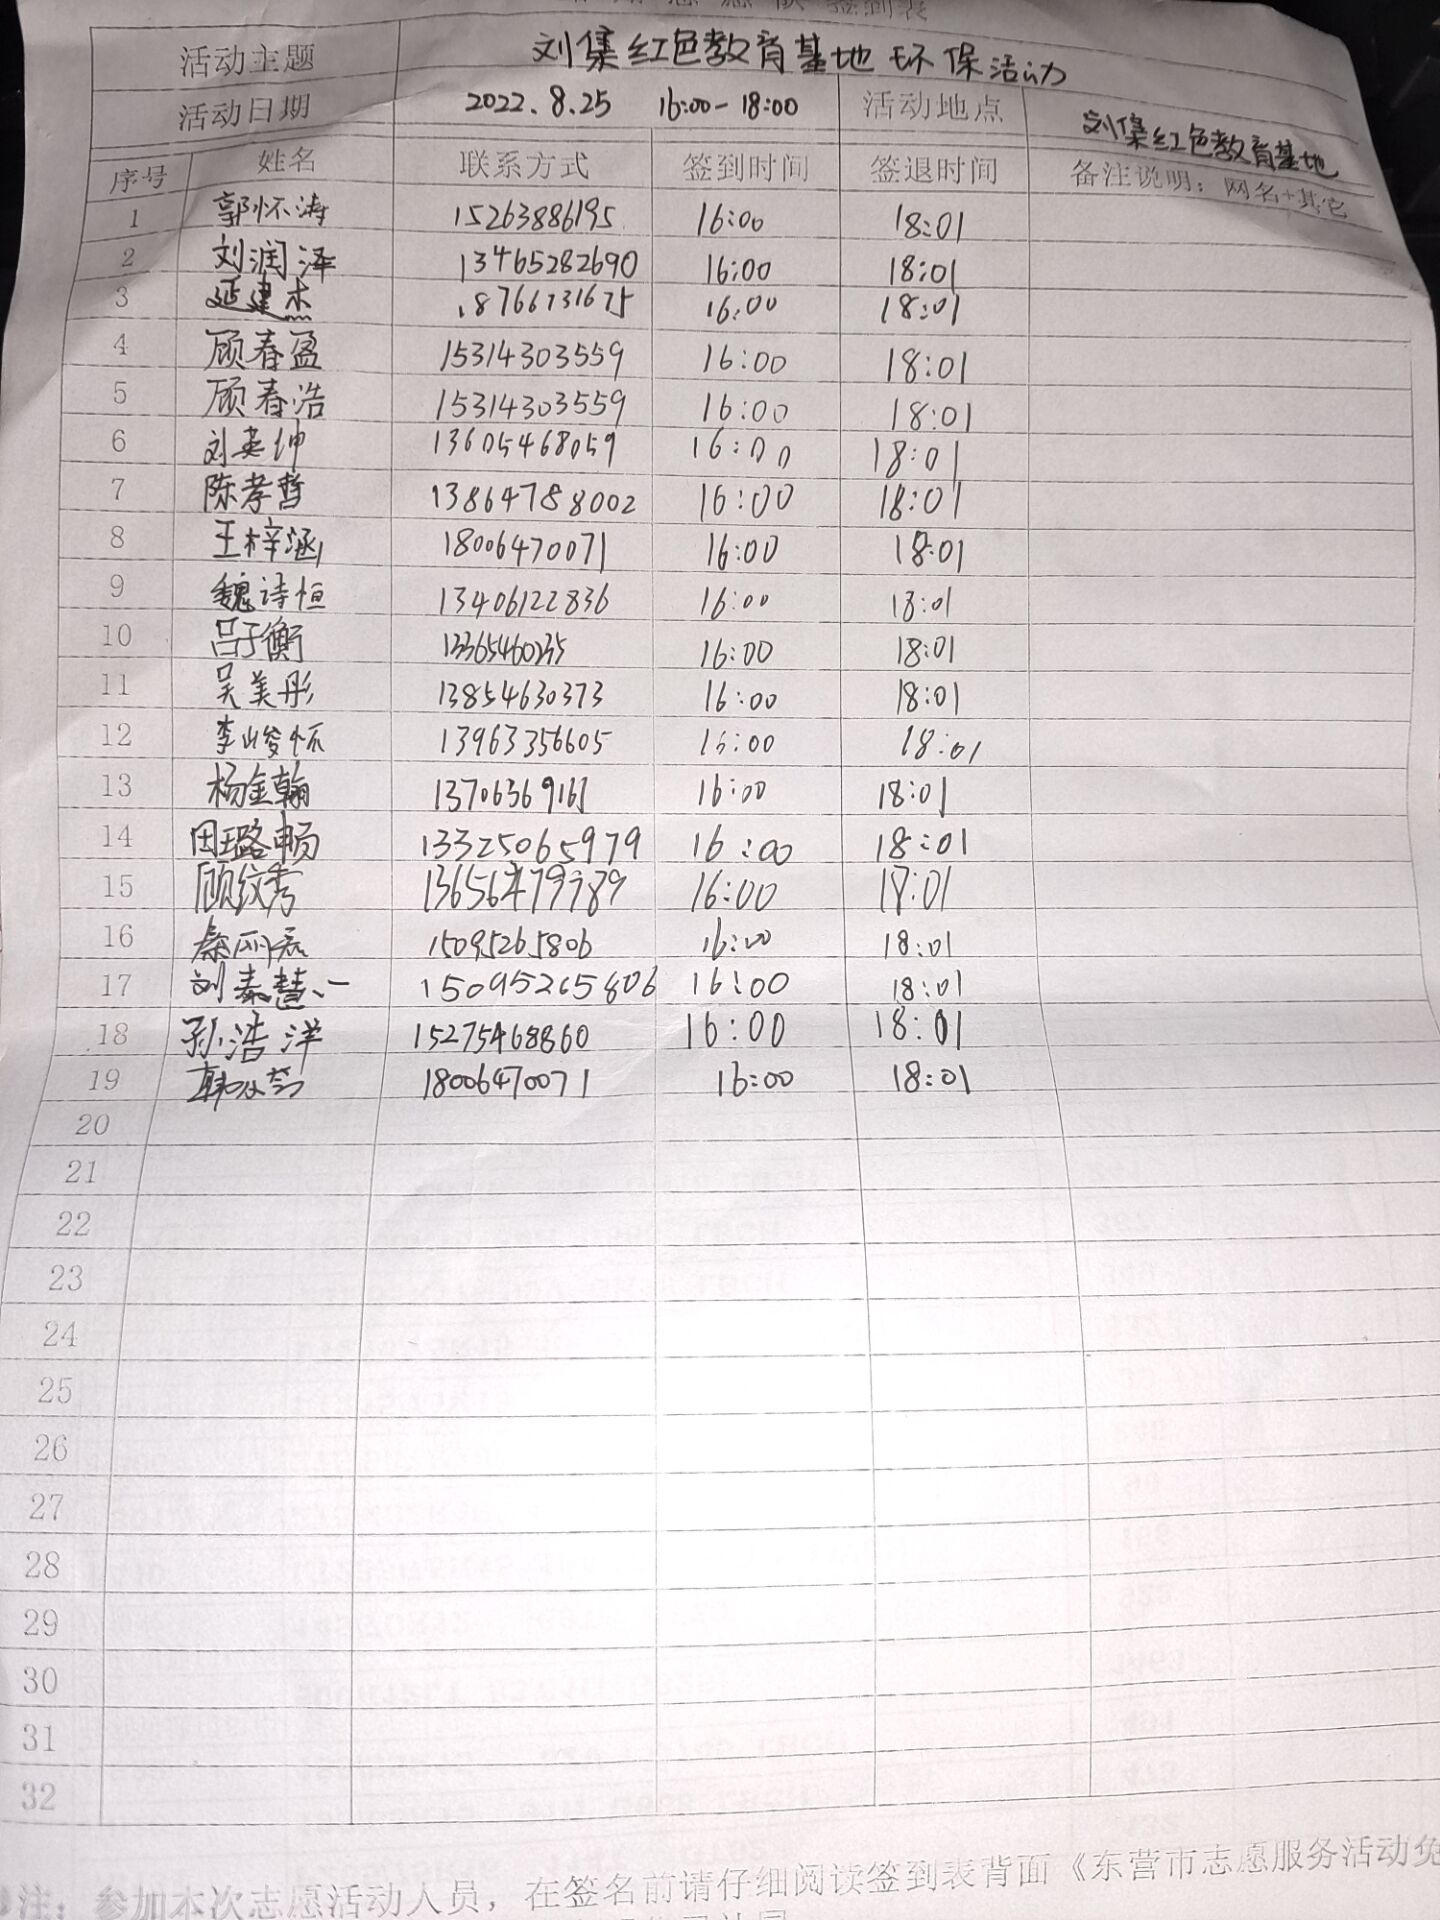 签到表
活动主题 刘集红色教育基地环保活动
活动日期 2022.8.25 16:00-18:00 活动地点 刘集红色教育基地
序号 姓名 联系方式 签到时间 签退时间 备注说明：网名+其它
1 郭怀涛 15263886195 16:00 18:01
2 刘润泽 13465282690 16:00 18:01
3 延建杰 18766731675 16:00 18:01
4 顾春盈 15314303559 16:00 18:01
5 顾春浩 15314303559 16:00 18:01
6 刘英坤 13605468059 16:00 18:01
7 陈孝哲 13864788002 16:00 18:01
8 王梓涵 18006470071 16:00 18:01
9 魏诗恒 13406122836 16:00 18:01
10 吕子衡 13365460235 16:00 18:01
11 吴美彤 13854630373 16:00 18:01
12 李峻怀 13963356605 16:00 18:01
13 杨金翰 13706369161 16:00 18:01
14 田璐畅 13325065979 16:00 18:01
15 顾纹秀 13656479789 16:00 18:01
16 秦丽磊 15095265806 16:00 18:01
17 刘秦慧一 15095265806 16:00 18:01
18 孙浩洋 15275468860 16:00 18:01
19 18006470071 16:00 18:01
20
21
22
23
24
25
26
27
28
29
30
31
32
注：参加本次志愿活动人员，在签名前请仔细阅读签到表背面《东营市志愿服务活动免